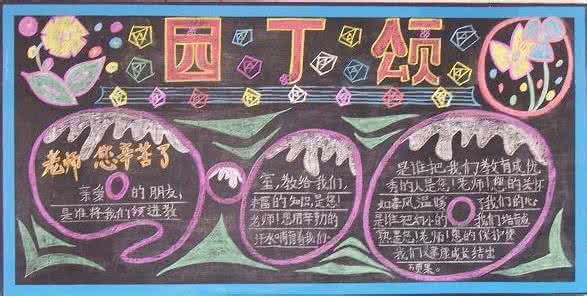 园丁颂
老师 您辛苦了
亲爱的朋友,
是谁将我们领进教
室,教给我们,
丰富的知识,是您!
老师!您用辛勤的
汗水哺育着我们。
是谁把我们教育成优
秀的人是您!老师!您的关怀
如春风温暖了我们的心
是谁把幼小的我们培
是您!老师!您的保护使
我们健康成长结出
硕果。